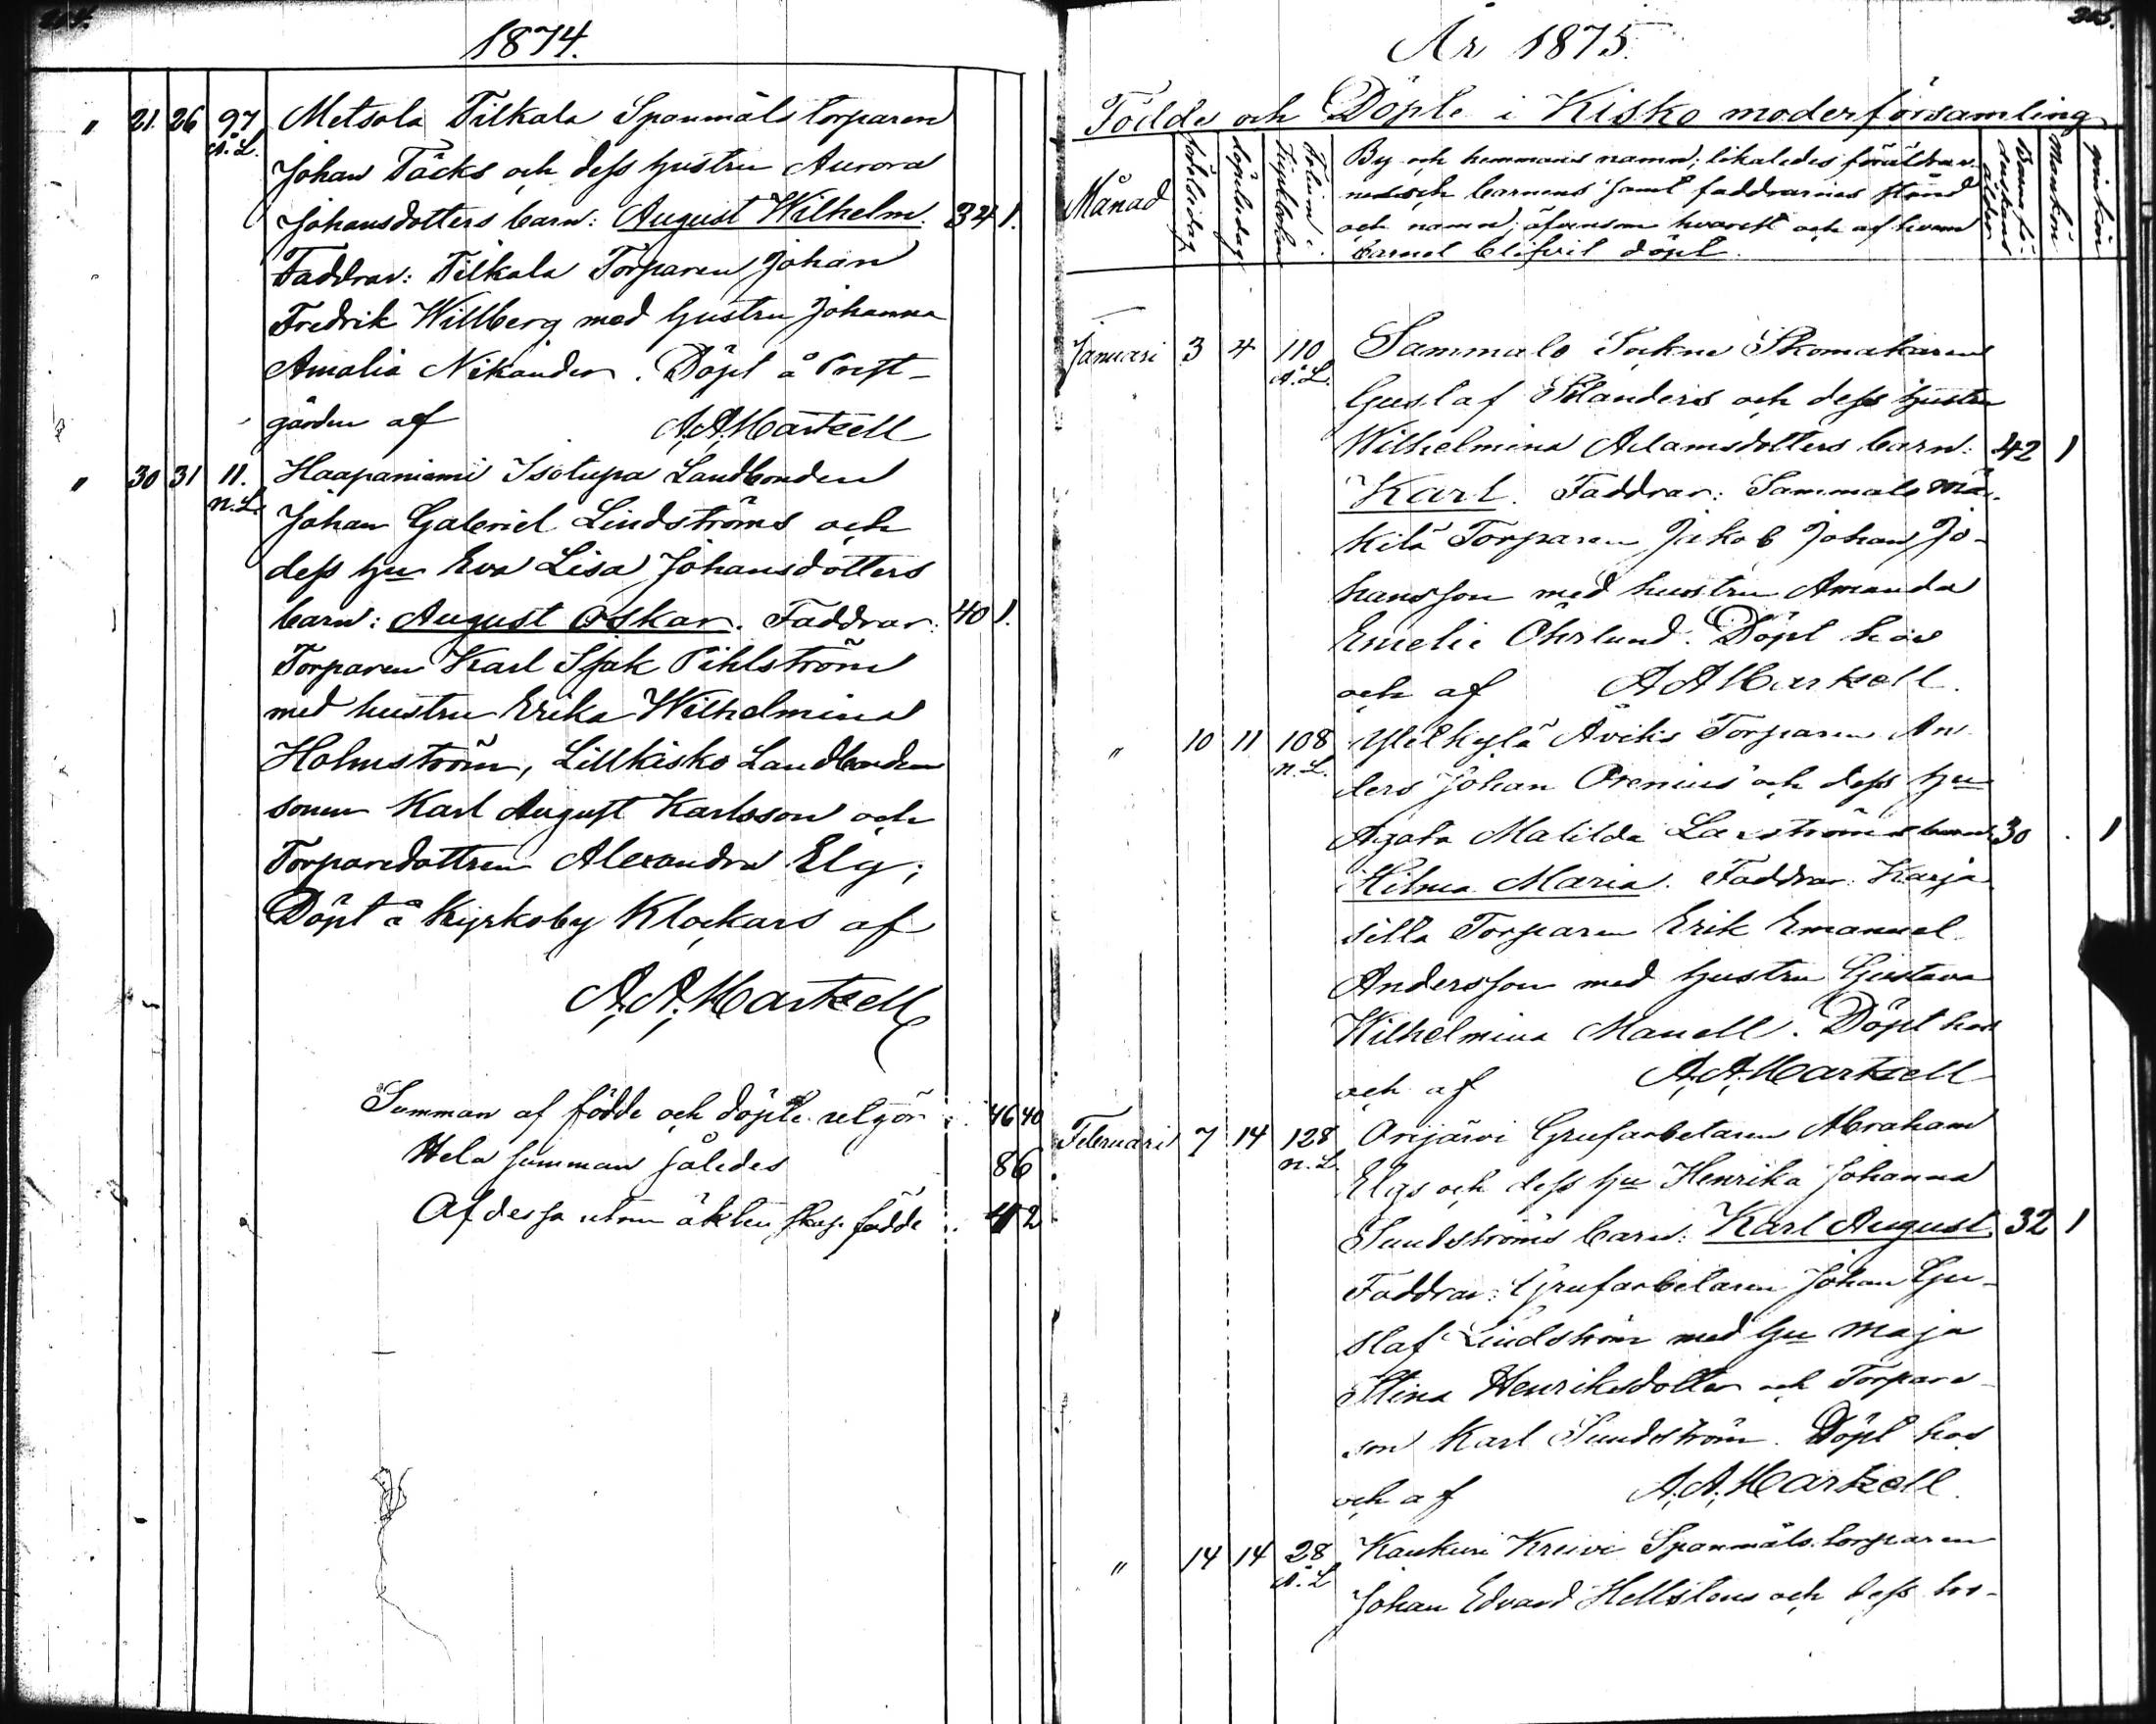 204.
1874.
" 21. 26 97 Metsola Tilkala Spanmåls torparen
A.L. Johan Täcks och dess hustru Aurora
Johansdotters barn: August Wilhelm. 34 1.
Faddrar: Tilkala Torparen Johan
Fredrik Willberg med hustru Johanna
Amalia Nikander. Döpt å Prest-
gården af A. A. Martzell
" 30 31 11. Haapaniemi Isotupa Landbonden
n.L. Johan Gabriel Lindströms och
dess hu Eva Lisa Johansdotters
barn: August Oskar. Faddrar: 40 1.
Torparen Karl Isak Pihlström
med hustru Erika Wilhelmina
Holmström, Lillkisko Landbonde
sonen Karl August Karlsson och
Torparedottren Alexandra Elg;
Döpt å Kyrkoby Klockars af
A. A. Martzell
Summan af födde och döpte utgör 46 40
Hela summan således 86
Af dessa utom äktenskap födde 4 2
205.
År 1875.
Födde och Döpte i Kisko moderförsamling
Månad födelsedag döpelsedag Folium i Kyrkboken By och hemmans namn; likaledes föräldrar-
nes och barnens samt faddrarnas stånd
och namn; äfvensom hvarest och af hvem
barnet blifvit döpt. Barnaföderskans ålder Mankön Qvinkön
Januari 3 4 110 Sammalo Sockne Skomakaren
A.L. Gustaf Silanders och dess hustru
Wilhelmina Adamsdotters barn: 42 1
Karl. Faddrar: Sammalo Mä-
kilä Torparen Jakob Johan Jo-
hansson med hustru Amanda
Emelie Öhrlund. Döpt hos
och af A A Martzell.
" 10 11 108 Ylikylä Äviks Torparen An-
n.L. ders Johan Orenius och dess hu
Agata Matilda Laxströms barn 30 . 1
Hilma Maria. Faddrar: Karja
silta Torparen Erik Emanuel
Andersson med hustru Gustava
Wilhelmina Manell. Döpt hos
och af A. A. Martzell
Februari 7 14 128 Orijärvi Grufarbetaren Abraham
n.L. Elgs och dess hu Henrika Johanna
Sundströms barn: Karl August. 32 1
Faddrar: Grufarbetaren Johan Gu-
staf Lindström med hu Maja
Stina Henriksdotter och Torpare-
son Karl Sundström. Döpt hos
och af A. A. Martzell.
" 14 14 28 Kaukuri Kreivi Spanmåls torparen
A.L. Johan Edvard Hellstens och dess hu-